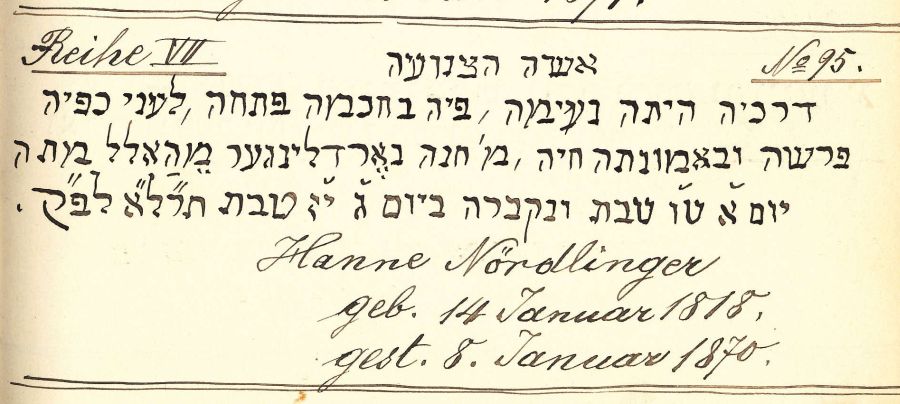 Reihe VII
אשה הצנועיה
No 95.
דרכיה היתה נעימה, פיה בחכמה פתחה, לעני כפיה
פרשה ובאמונתה חיה, מ׳ חנה נארדלינגער מהאלל מתה
יום א׳ טו טבת ונקברה ביום ג׳ יז טבת תרל״א לפ״ק.
Hanne Nördlinger
geb. 14 Januar 1818.
gest. 8. Januar 1870.